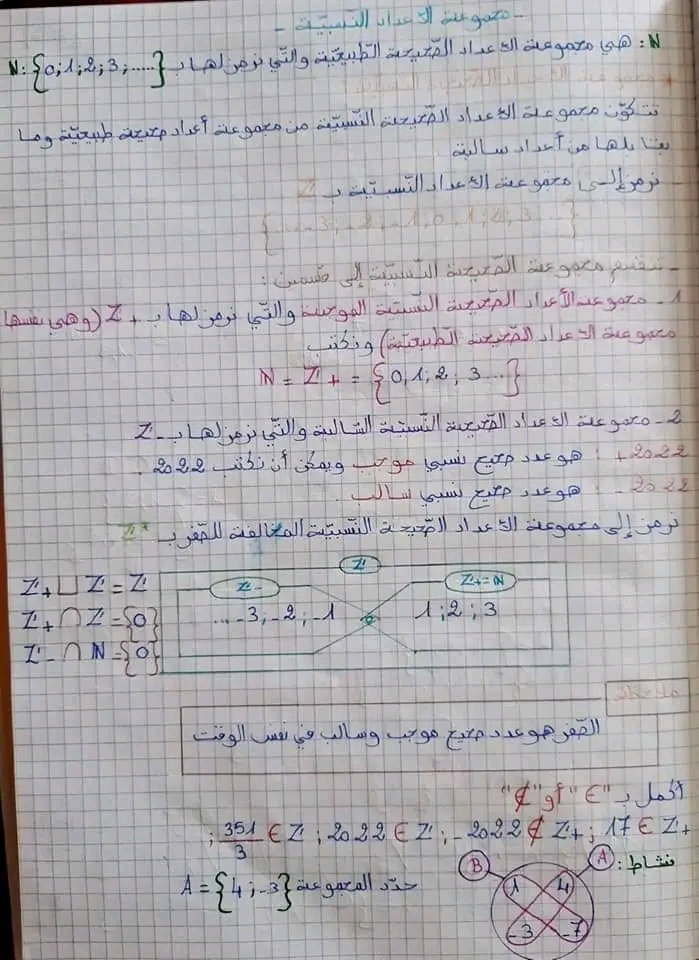 - مجموعة الأعداد النسبيّة -
N : هي مجموعة الأعداد الصّحيحة الطّبيعيّة والتّي نرمز لها ب N : {0 ; 1 ; 2 ; 3 ; .....}
تتكوّن مجموعة الأعداد الصّحيحة النّسبيّة من مجموعة أعداد صحيحة طبيعيّة وما
يقابلها من أعداد سالبة
نرمز إلى مجموعة الأعداد النّسبيّة ب Z
{... -3 ; -2 ; -1 ; 0 ; 1 ; 2 ; 3 ...}
- تنقسم مجموعة الصّحيحة النّسبيّة إلى قسمين :
1 - مجموعة الأعداد الصّحيحة النّسبيّة الموجبة والتّي نرمز لها ب Z+ (وهي نفسها
مجموعة الأعداد الصّحيحة الطّبيعيّة) ونكتب
N = Z+ = {0 , 1 ; 2 ; 3 ....}
2 - مجموعة الأعداد الصّحيحة النّسبيّة السّالبة والتّي نرمز لها ب Z-
+2022 : هو عدد صحيح نسبي موجب ويمكن أن نكتب 2022 .
-2022 : هو عدد صحيح نسبي سالب .
نرمز إلى مجموعة الأعداد الصّحيحة النّسبيّة المخالفة للصّفر ب Z*
Z
Z-
Z+ = N
... -3 ; -2 ; -1
0
1 ; 2 ; 3
Z+ ∪ Z- = Z
Z+ ∩ Z- = {0}
Z- ∩ N = {0}
ملاحظة
الصّفر هو عدد صحيح موجب وسالب في نفس الوقت
أكمل ب "∈" أو "∉"
17 ∈ Z+ ; -2022 ∉ Z+ ; 2022 ∈ Z ; 351/3 ∈ Z ;
نشاط :
A
B
1
4
-3
-7
حدّد المجموعة A = {4 ; -3}